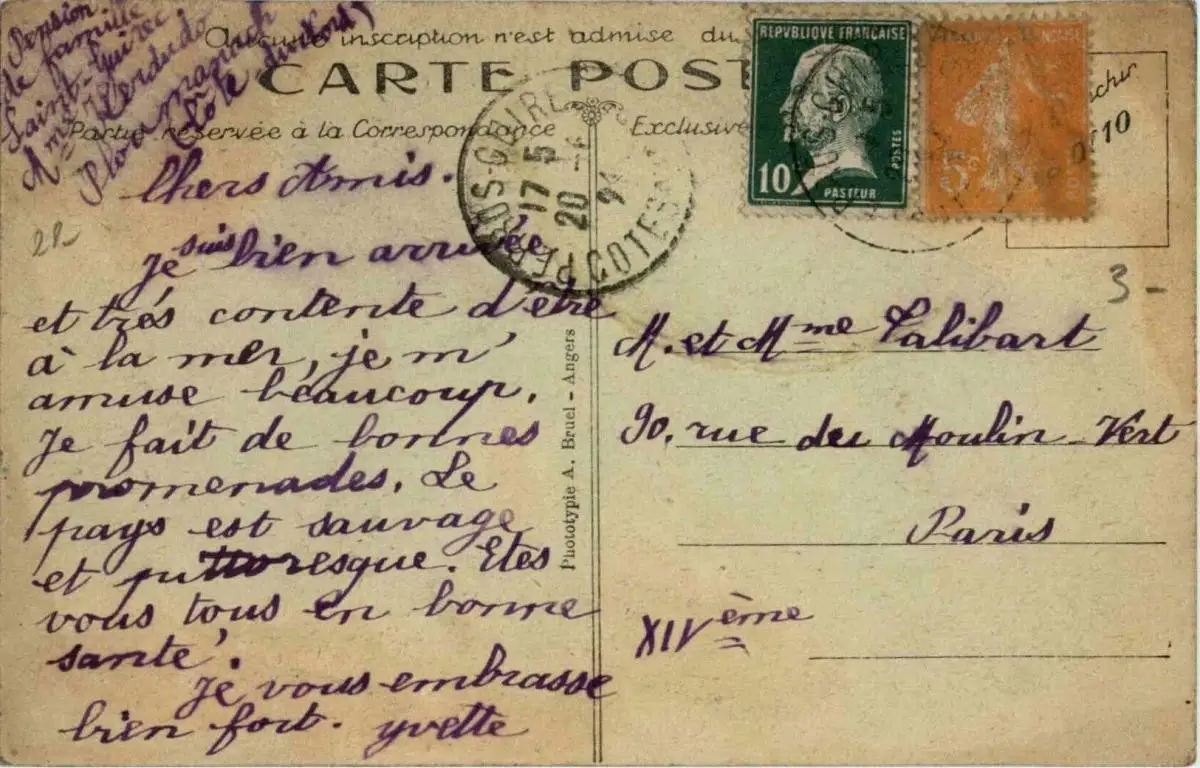 Pension
de famille
Saint-Guirec
Ploumanach
(Côte du Nord)
Aucune inscription n'est admise du
CARTE POST
Partie réservée à la Correspondance
Exclusive
RÉPUBLIQUE FRANÇAISE
10
POSTES
PASTEUR
5c
PERROS-GUIREC
17 5
20
COTES
10
Chers Amis.
Je suis bien arrivée
et trés contente d'être
à la mer, je m'
amuse beaucoup.
Je fait de bonnes
promenades. Le
pays est sauvage
et pittoresque. Etes
vous tous en bonne
santé.
Je vous embrasse
bien fort. yvette
Phototypie A. Bruel - Angers
3 -
M. et Mme Talibart
90, rue du Moulin Vert
Paris
XIVème